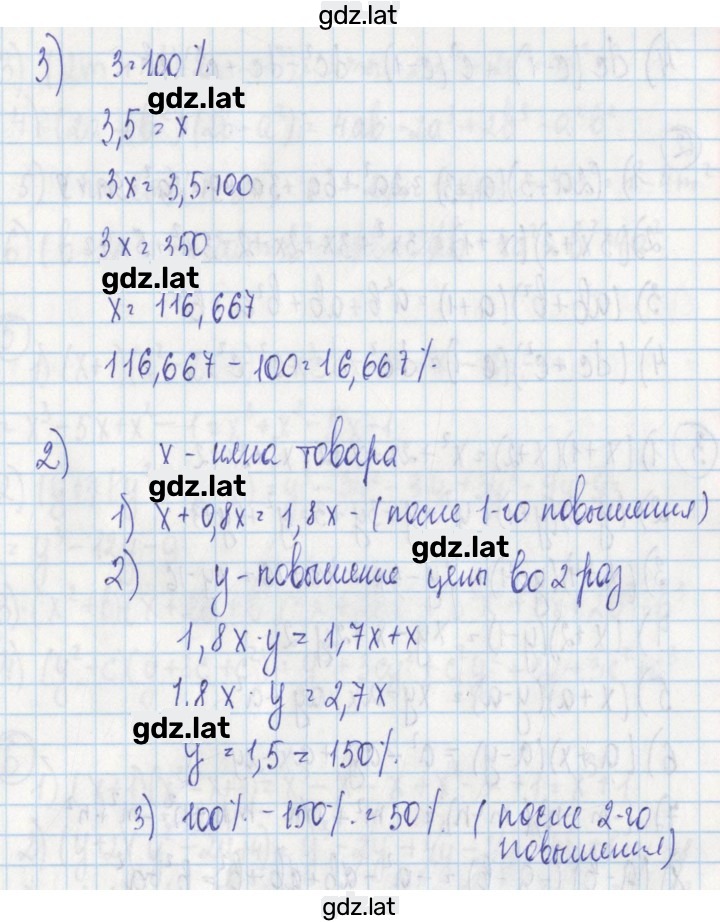 gdz.lat
3) 3=100%
gdz.lat
3,5=x
3x=3,5·100
3x=350
gdz.lat
x=116,667
116,667-100=16,667%
2) x-цена товара
gdz.lat
1) x+0,8x=1,8x-(после 1-го повышения)
gdz.lat
2) y-повышение цены во 2 раз
1,8x·y=1,7x+x
1.8x·y=2,7x
gdz.lat
y=1,5=150%.
3) 100%-150%.=50%. (после 2-го
повышения)
gdz.lat